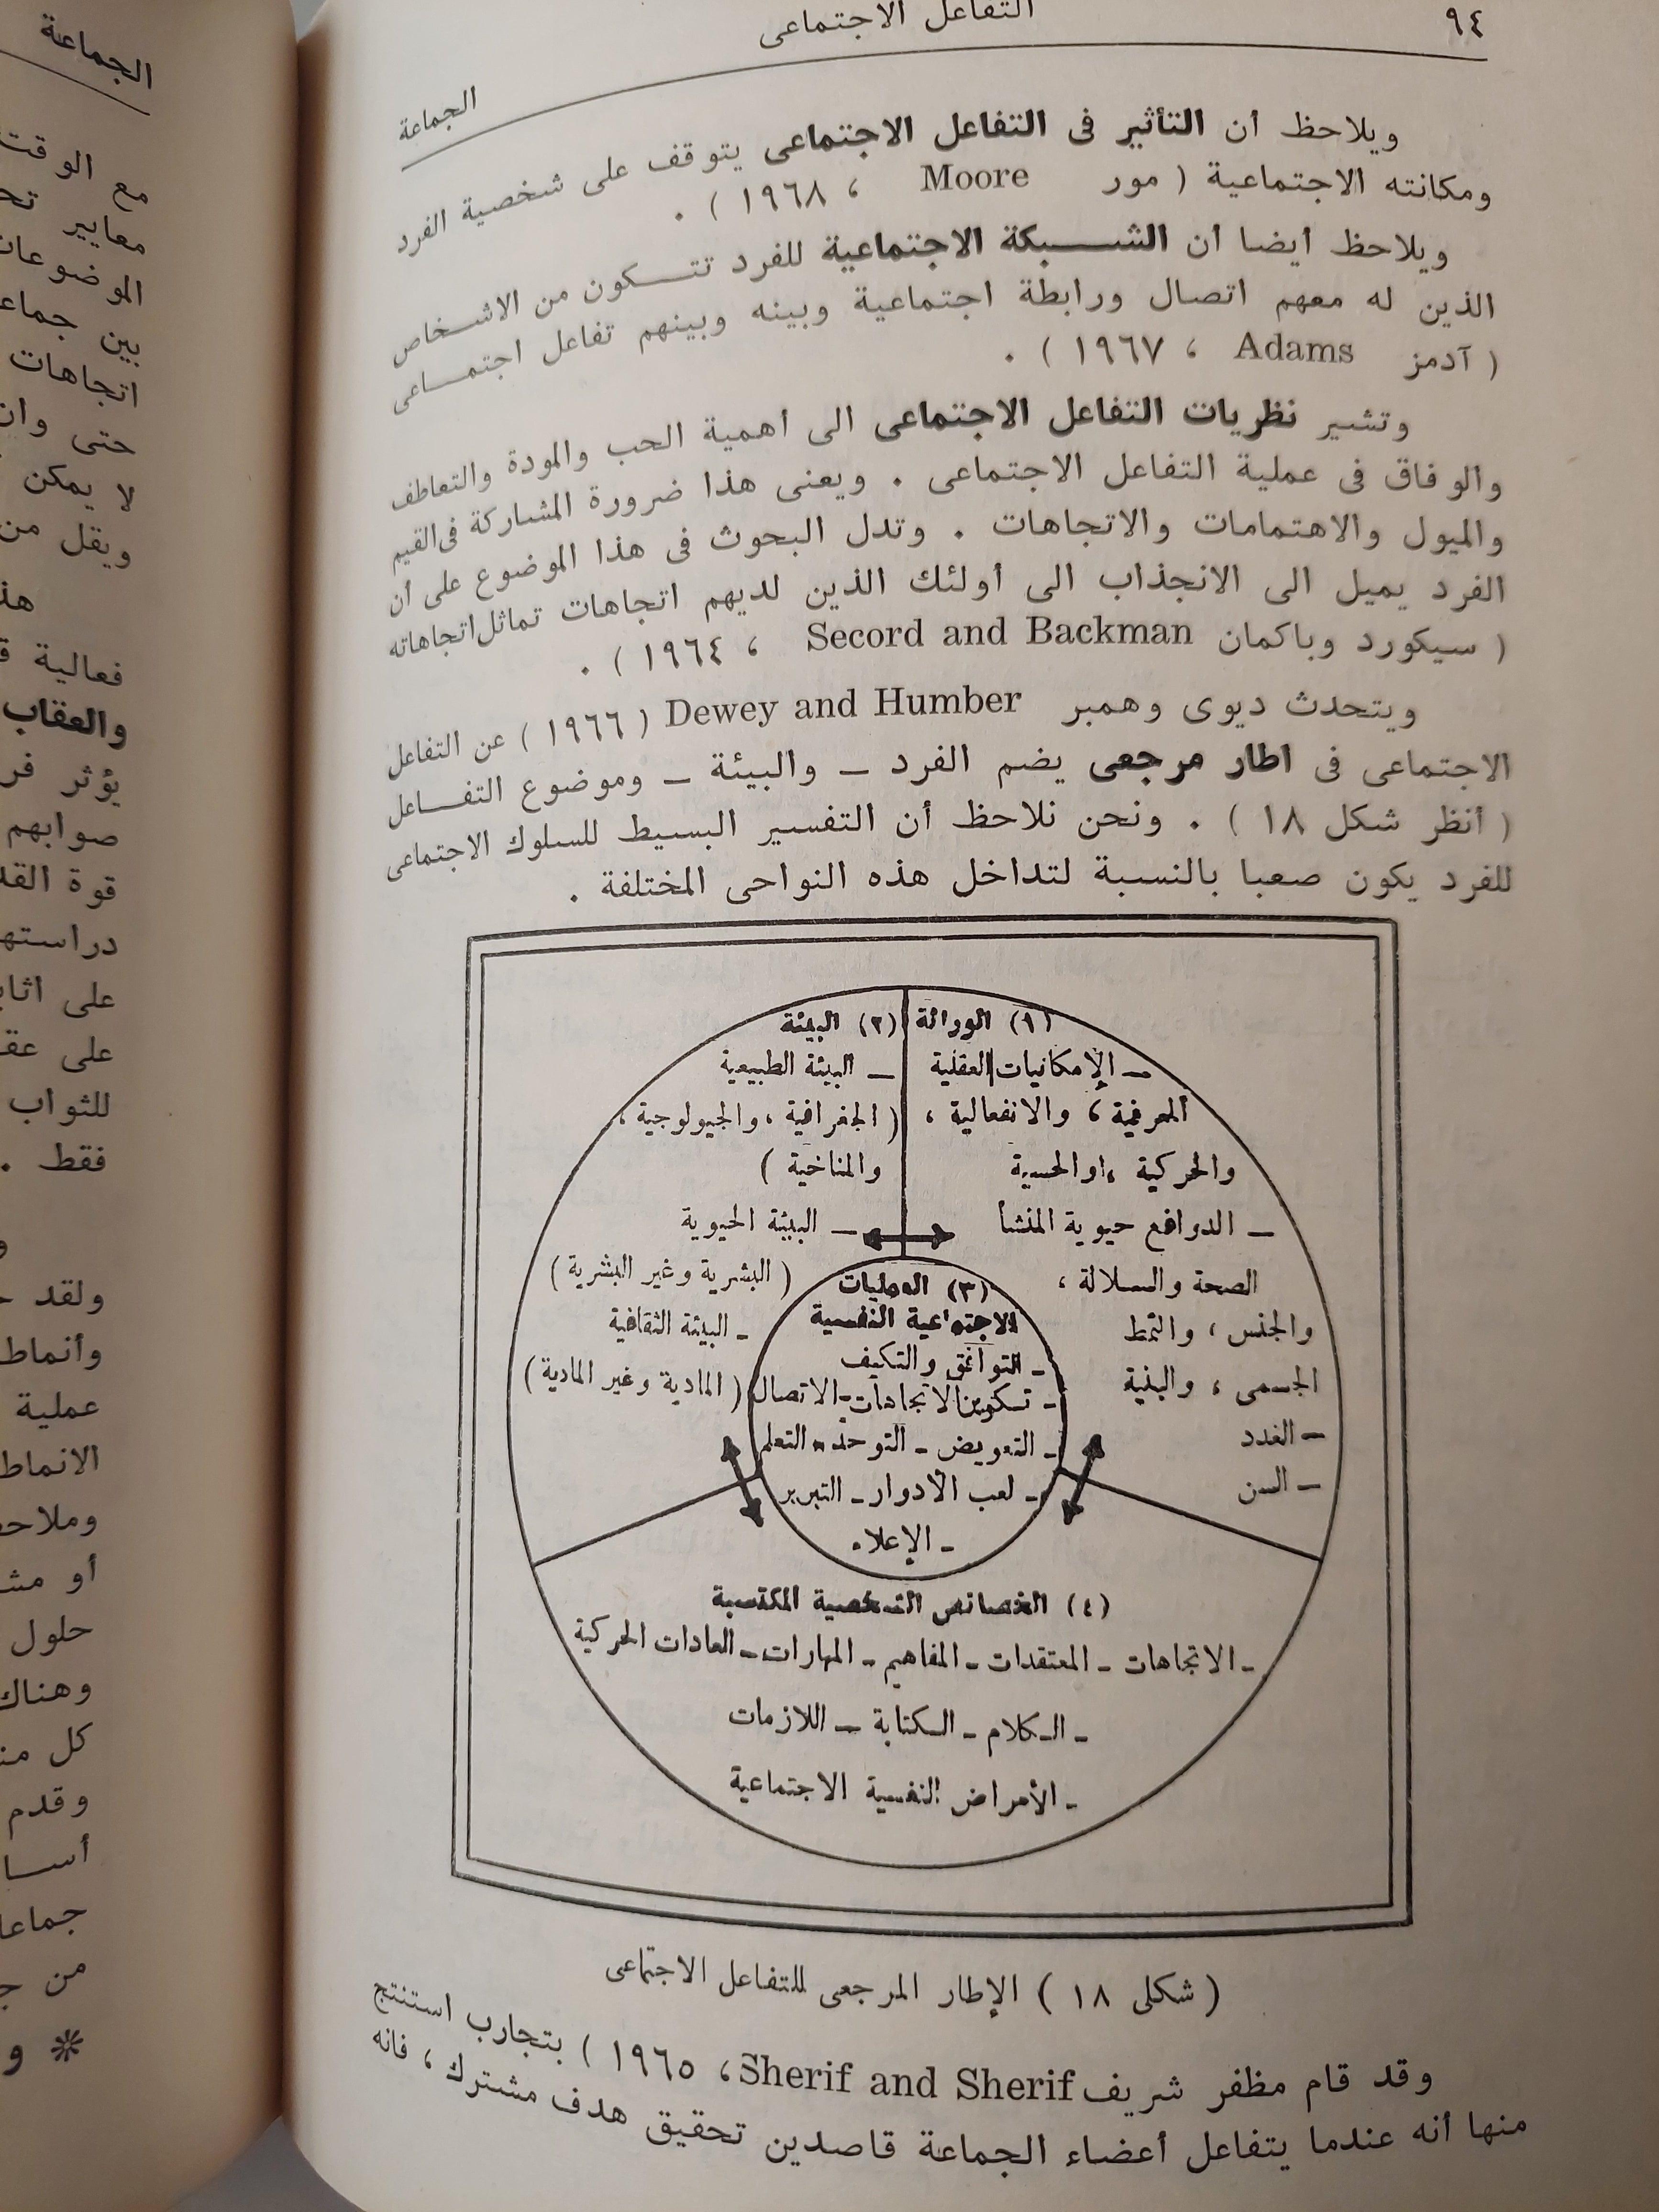 ٩٤
التفاعل الاجتماعى
الجماعة
ويلاحظ أن التأثير فى التفاعل الاجتماعى يتوقف على شخصية الفرد
ومكانته الاجتماعية ( مور Moore ، ١٩٦٨ ) .
ويلاحظ أيضا أن الشبكة الاجتماعية للفرد تتكون من الاشخاص
الذين له معهم اتصال ورابطة اجتماعية وبينه وبينهم تفاعل اجتماعى
( آدمز Adams ، ١٩٦٧ ) .
وتشير نظريات التفاعل الاجتماعى الى أهمية الحب والمودة والتعاطف
والوفاق فى عملية التفاعل الاجتماعى . ويعنى هذا ضرورة المشاركة فى القيم
والميول والاهتمامات والاتجاهات . وتدل البحوث فى هذا الموضوع على أن
الفرد يميل الى الانجذاب الى أولئك الذين لديهم اتجاهات تماثل اتجاهاته
( سيكورد وباكمان Secord and Backman ، ١٩٦٤ ) .
ويتحدث ديوى وهمبر Dewey and Humber ( ١٩٦٦ ) عن التفاعل
الاجتماعى فى اطار مرجعى يضم الفرد – والبيئة – وموضوع التفاعل
( أنظر شكل ١٨ ) . ونحن نلاحظ أن التفسير البسيط للسلوك الاجتماعى
للفرد يكون صعبا بالنسبة لتداخل هذه النواحى المختلفة .
(١) الوراثة
– الإمكانيات العقلية
المعرفية ، والانفعالية ،
والحركية ، او الحسية
– الدوافع حيوية المنشأ
الصحة والسلالة ،
والجنس ، والنمط
الجسمى ، والبنية
– الغدد
– السن
(٢) البيئة
– البيئة الطبيعية
( الجغرافية ، والجيولوجية ،
والمناخية )
– البيئة الحيوية
( البشرية وغير البشرية )
- البيئة الثقافية
( المادية وغير المادية )
(٣) العمليات
الاجتماعية النفسية
- التوافق والتكيف
- تكوين الاتجاهات - الاتصال
- التعويض - التوحد - التعلم
- لعب الأدوار - التبرير
- الإعلاء
(٤) الخصائص الشخصية المكتسبة
- الاتجاهات - المعتقدات - المفاهيم - المهارات - العادات الحركية
- الكلام - الكتابة – اللازمات
- الأمراض النفسية الاجتماعية
( شكلى ١٨ ) الإطار المرجعى للتفاعل الاجتماعى
وقد قام مظفر شريف Sherif and Sherif ، ١٩٦٥ ) بتجارب استنتج
منها أنه عندما يتفاعل أعضاء الجماعة قاصدين تحقيق هدف مشترك ، فانه
الجماعة
مع الوقت
معايير
الموضوعات
بين
اتجاهات
حتى وان
لا يمكن
ويقل من
فعالية
والعقاب
يؤثر
صوابهم
قوة
على
على
للثواب
فقط .
ولقد
وأنماط
عملية
الانماط
أو
حلول
وهناك
كل
وقدم
من